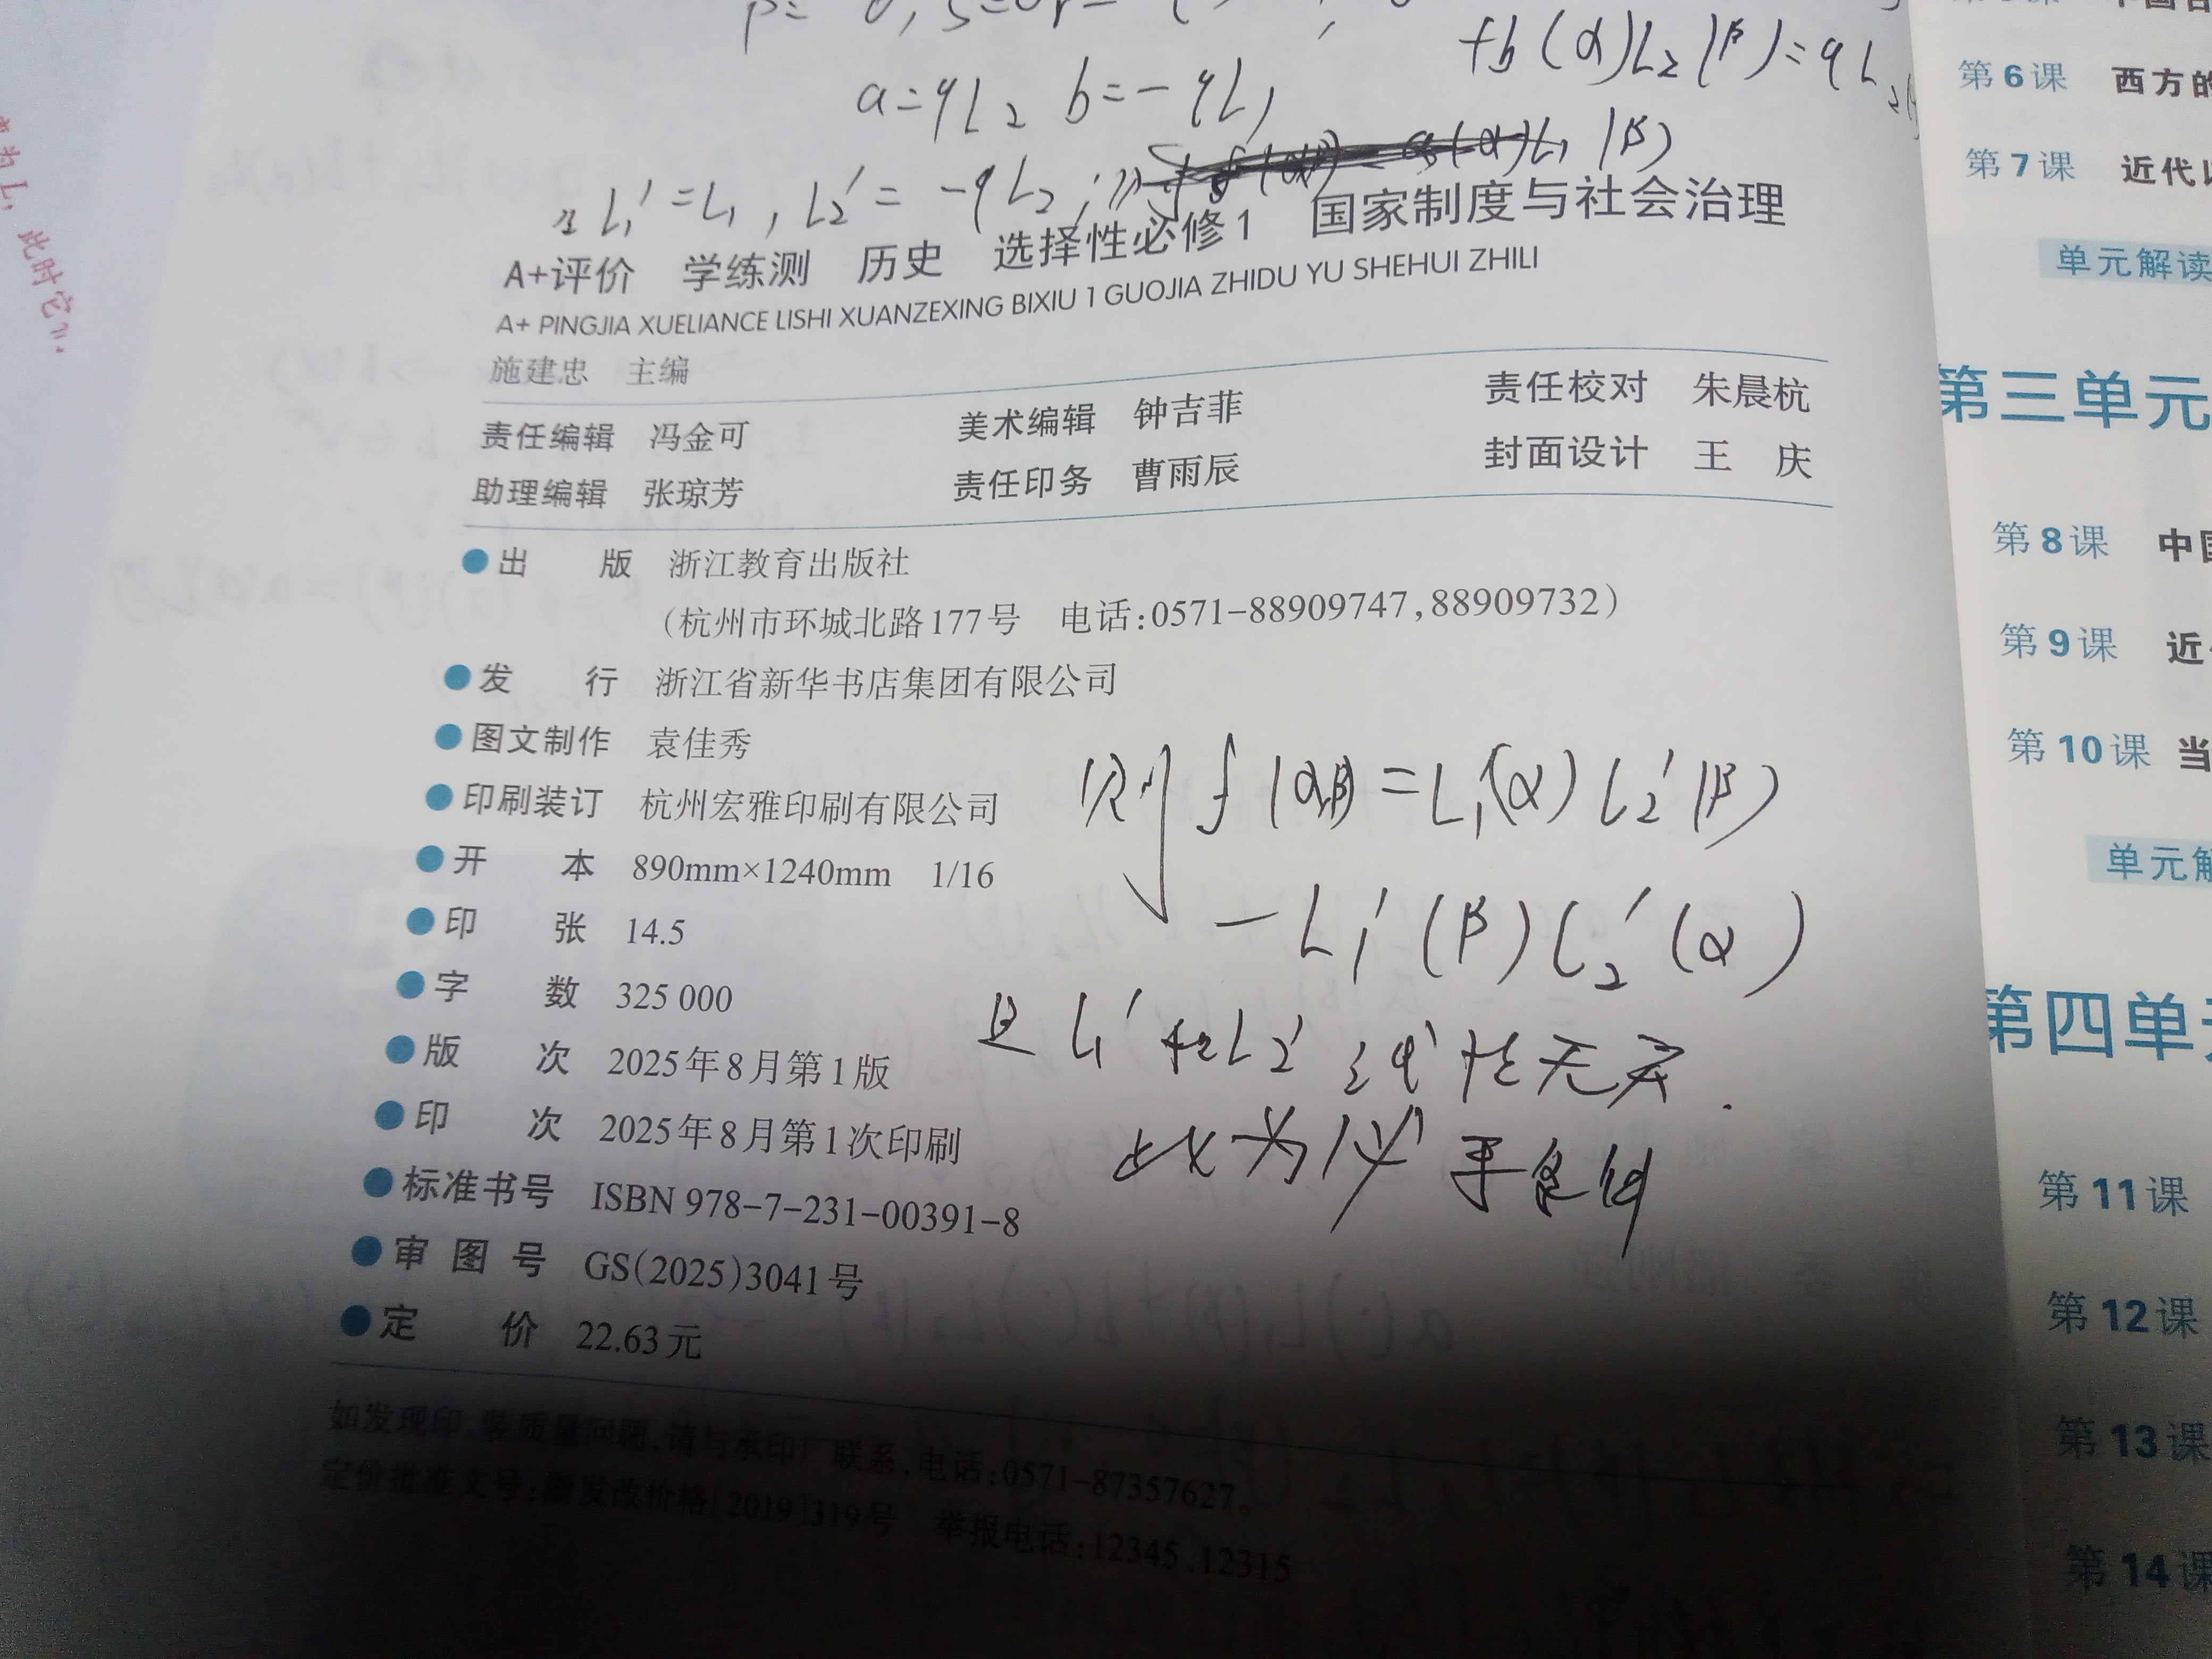 a=qL₂ b=-qL₁
+b(α)L₂(β)=qL₂
L₁'=L₁, L₂'=-qL₂;
A+评价 学练测 历史 选择性必修1 国家制度与社会治理
A+ PINGJIA XUELIANCE LISHI XUANZEXING BIXIU 1 GUOJIA ZHIDU YU SHEHUI ZHILI
施建忠 主编
责任编辑 冯金可 美术编辑 钟吉菲 责任校对 朱晨杭
助理编辑 张琼芳 责任印务 曹雨辰 封面设计 王 庆
●出 版 浙江教育出版社
(杭州市环城北路177号 电话:0571-88909747,88909732)
●发 行 浙江省新华书店集团有限公司
●图文制作 袁佳秀
●印刷装订 杭州宏雅印刷有限公司
●开 本 890mm×1240mm 1/16
●印 张 14.5
●字 数 325 000
●版 次 2025年8月第1版
●印 次 2025年8月第1次印刷
●标准书号 ISBN 978-7-231-00391-8
●审 图 号 GS(2025)3041号
●定 价 22.63元
如发现印、装质量问题,请与承印厂联系,电话:0571-87357627。
定价批准文号:浙发改价格[2019]319号 举报电话:12345、12315
则 f(α,β)=L₁'(α)L₂'(β)
-L₁'(β)L₂'(α)
且 L₁'和L₂'线性无关.
此时它
第6课 西方的
第7课 近代以
单元解读
第三单元
第8课 中国
第9课 近代
第10课 当
单元解
第四单元
第11课
第12课
第13课
第14课